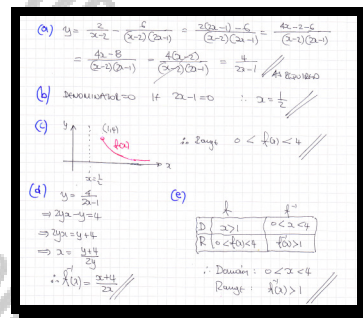 (a) y = 2/(x-2) - 6/((x-2)(2x-1)) = (2(2x-1)-6)/((x-2)(2x-1)) = (4x-2-6)/((x-2)(2x-1))
= (4x-8)/((x-2)(2x-1)) = (4(x-2))/((x-2)(2x-1)) = 4/(2x-1) // AS REQUIRED
(b) DENOMINATOR=0 IF 2x-1=0 ∴ x=1/2 //
(c) y (1,4) f(x) x x=1/2 ∴ Range 0 < f(x) < 4 //
(d) y = 4/(2x-1)
⇒ 2yx-y=4
⇒ 2yx=y+4
⇒ x = (y+4)/2y
∴ f⁻¹(x) = (x+4)/2x //
(e) f f⁻¹
D x>1 0<x<4
R 0<f(x)<4 f⁻¹(x)>1
∴ Domain: 0<x<4
Range: f⁻¹(x)>1 //